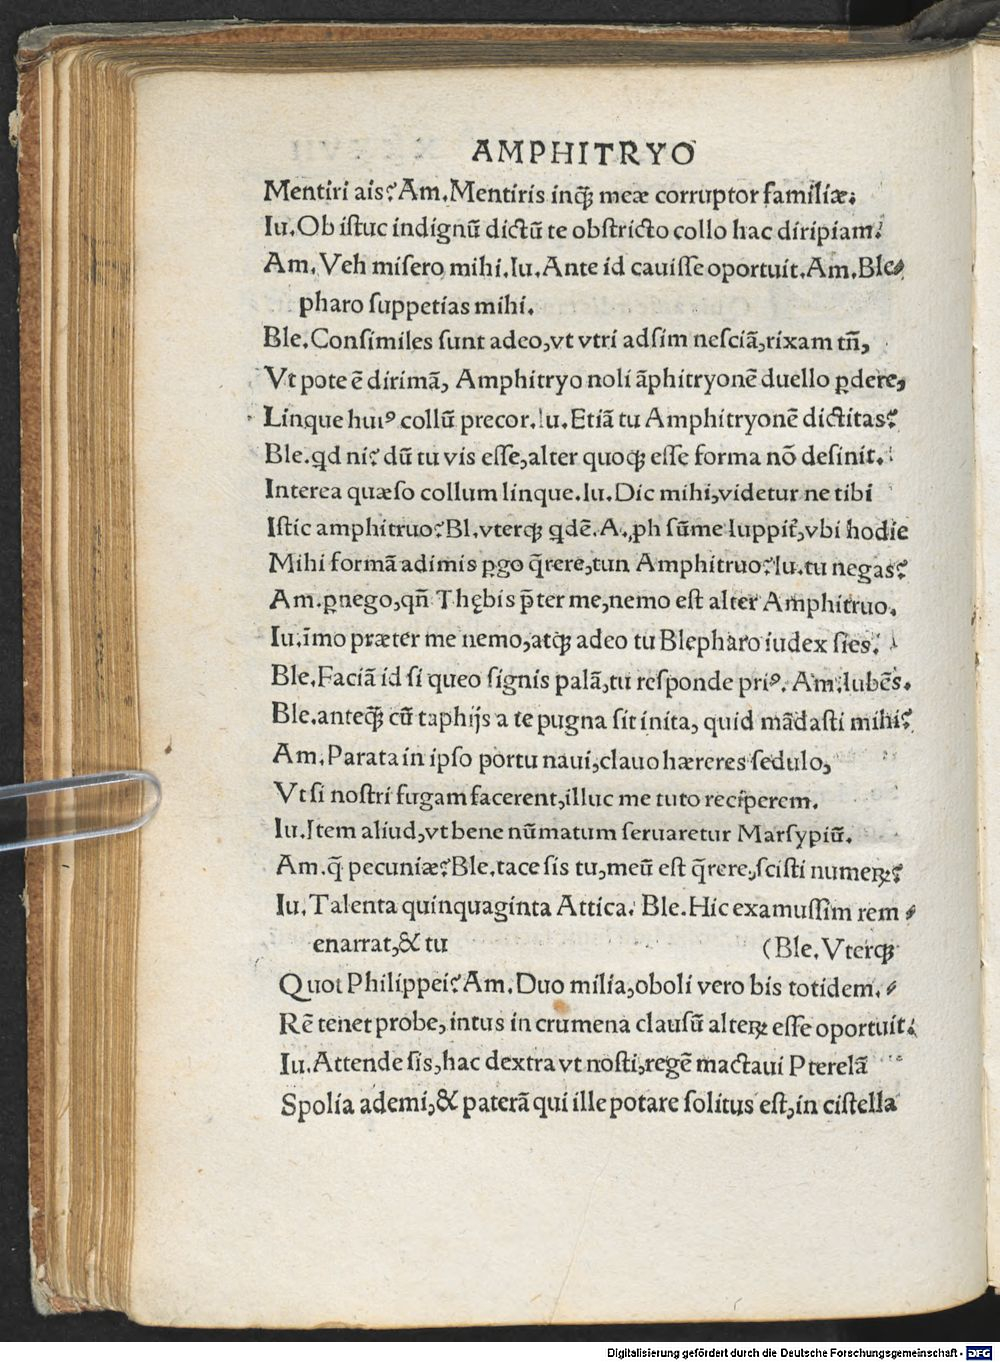 AMPHITRYO
Mentiri ais? Am. Mentiris inqꝫ meæ corruptor familiæ:
Iu. Ob iſtuc indignū dictū te obſtricto collo hac diripiam.
Am. Veh miſero mihi. Iu. Ante id cauiſſe oportuit. Am. Ble⸗
pharo ſuppetias mihi.
Ble. Conſimiles ſunt adeo, vt vtri adſim neſciā, rixam tñ,
Vt pote ē dirimā, Amphitryo noli āphitryonē duello ꝑdere,
Linque huiꝰ collū precor. Iu. Etiā tu Amphitryonē dictitas?
Ble. qd ni? dū tu vis eſſe, alter quoqꝫ eſſe forma nō deſinit.
Interea quæſo collum linque. Iu. Dic mihi, videtur ne tibi
Iſtic amphitruo? Bl. vterqꝫ qdē. A. ꝓh sūme Iuppiť, vbi hodie
Mihi formā adimis ꝑgo q̄rere, tun Amphitruo? Iu. tu negas?
Am. ꝑnego, qñ Thębis p̄ter me, nemo eſt alter Amphitruo.
Iu. īmo præter me nemo, atqꝫ adeo tu Blepharo iudex ſies.
Ble. Faciā id ſi queo ſignis palā, tu reſponde priꝰ. Am. lubēs.
Ble. anteqꝫ̄ cū taphijs a te pugna ſit inita, quid mādaſti mihi?
Am. Parata in ipſo portu naui, clauo hæreres ſedulo,
Vt ſi noſtri fugam facerent, illuc me tuto reciperem.
Iu. Item aliud, vt bene nūmatum ſeruaretur Marſypiū.
Am. q̄ pecuniæ? Ble. tace ſis tu, meū eſt q̄rere, ſciſti numeꝝ?
Iu. Talenta quinquaginta Attica. Ble. Hic examuſſim rem
enarrat, & tu (Ble. Vterqꝫ
Quot Philippei? Am. Duo milia, oboli vero bis totidem.
Rē tenet probe, intus in crumena clauſū alteꝝ eſſe oportuit.
Iu. Attende ſis, hac dextra vt noſti, regē mactaui Pterelā
Spolia ademi, & paterā qui ille potare ſolitus eſt, in ciſtella
Digitalisierung gefördert durch die Deutsche Forschungsgemeinschaft - DFG